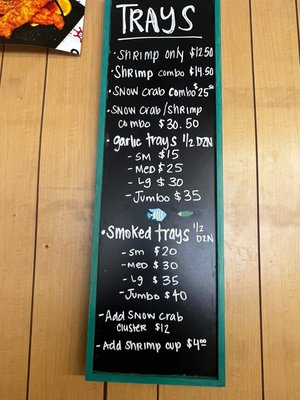 TRAYS
• Shrimp only $12.50
• Shrimp combo $14.50
• Snow crab combo $25.00
• Snow crab/shrimp
combo $30.50
• garlic trays 1/2 DZN
- SM $15
- MED $25
- Lg $30
- Jumbo $35
• Smoked trays 1/2 DZN
- SM $20
- MED $30
- Lg $35
- Jumbo $40
- Add Snow crab
cluster $12
- Add shrimp cup $4.00